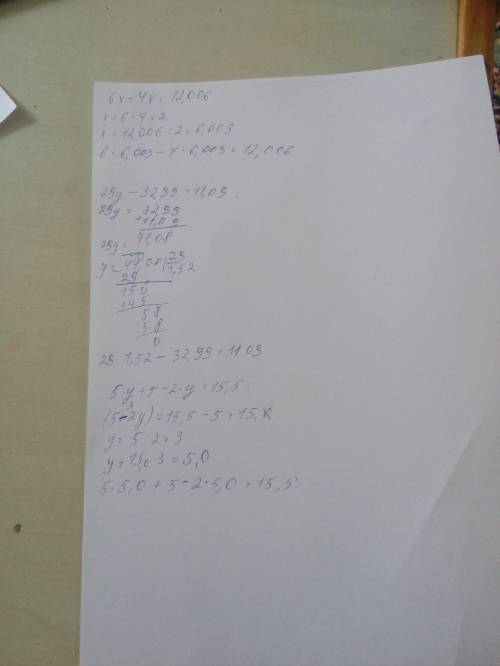 6x-4x=12,006
x=6-4=2
x=12,006:2=6,003
6·6,003-4·6,003=12,006
29y-32,99=11,09.
29y=32,99
+11,09
29y=44,08
y=44,08|29
29 1,52
150
145
58
58
0
29·1,52-32,99=11.09
5·y+5-2·y=15,5.
3
(5-2y)=15,5-5=15,
y=5-2=3
y=15,0:3=5,0
5·5,0+5-2·5,0=15,5